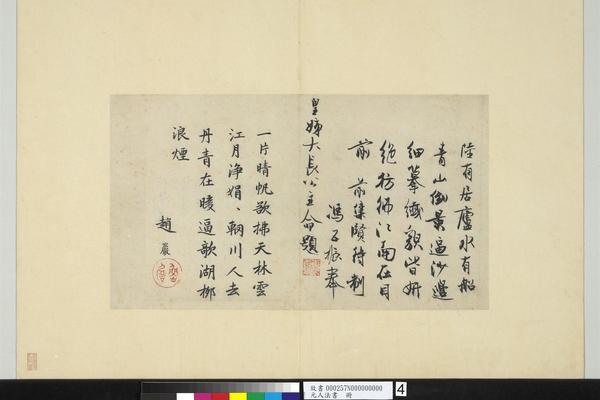 陸有居廬水有船
青山倒景逼沙邊
細摹皆妍
絕彷彿江南在目
前 前集賢待制
馮子振奉
皇姊大長公主命題
一片晴帆欲拂天林雲
江月淨娟、輞川人去
丹青在暖逼歌湖柳
浪煙
趙巖
故書 000257N000000000
元人法書 冊
4